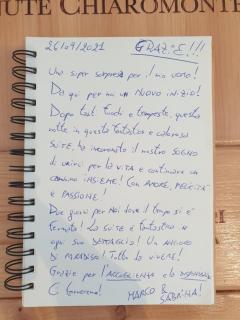 NUTE CHIAROMONTE
26/09/2021 GRAZIE!!!
Una super sorpresa per il mio uomo!
Da qui per noi un NUOVO INIZIO!
Dopo tanti fuochi e tempeste, questa
notte in questa fantastica e calorosa
SUITE, ha incoronato il nostro SOGNO
di unirci per la VITA e continuare un
cammino INSIEME! Con AMORE, FELICITÀ
e PASSIONE!
Due giorni per Noi dove il tempo si è
fermato! La SUITE è fantastica in
ogni suo DETTAGLIO! Un ANGOLO
DI PARADISO! Tutto da VIVERE!
Grazie per l'ACCOGLIENZA e la DISPONIBILITÀ
Ci torneremo! MARCO & SABRINA!